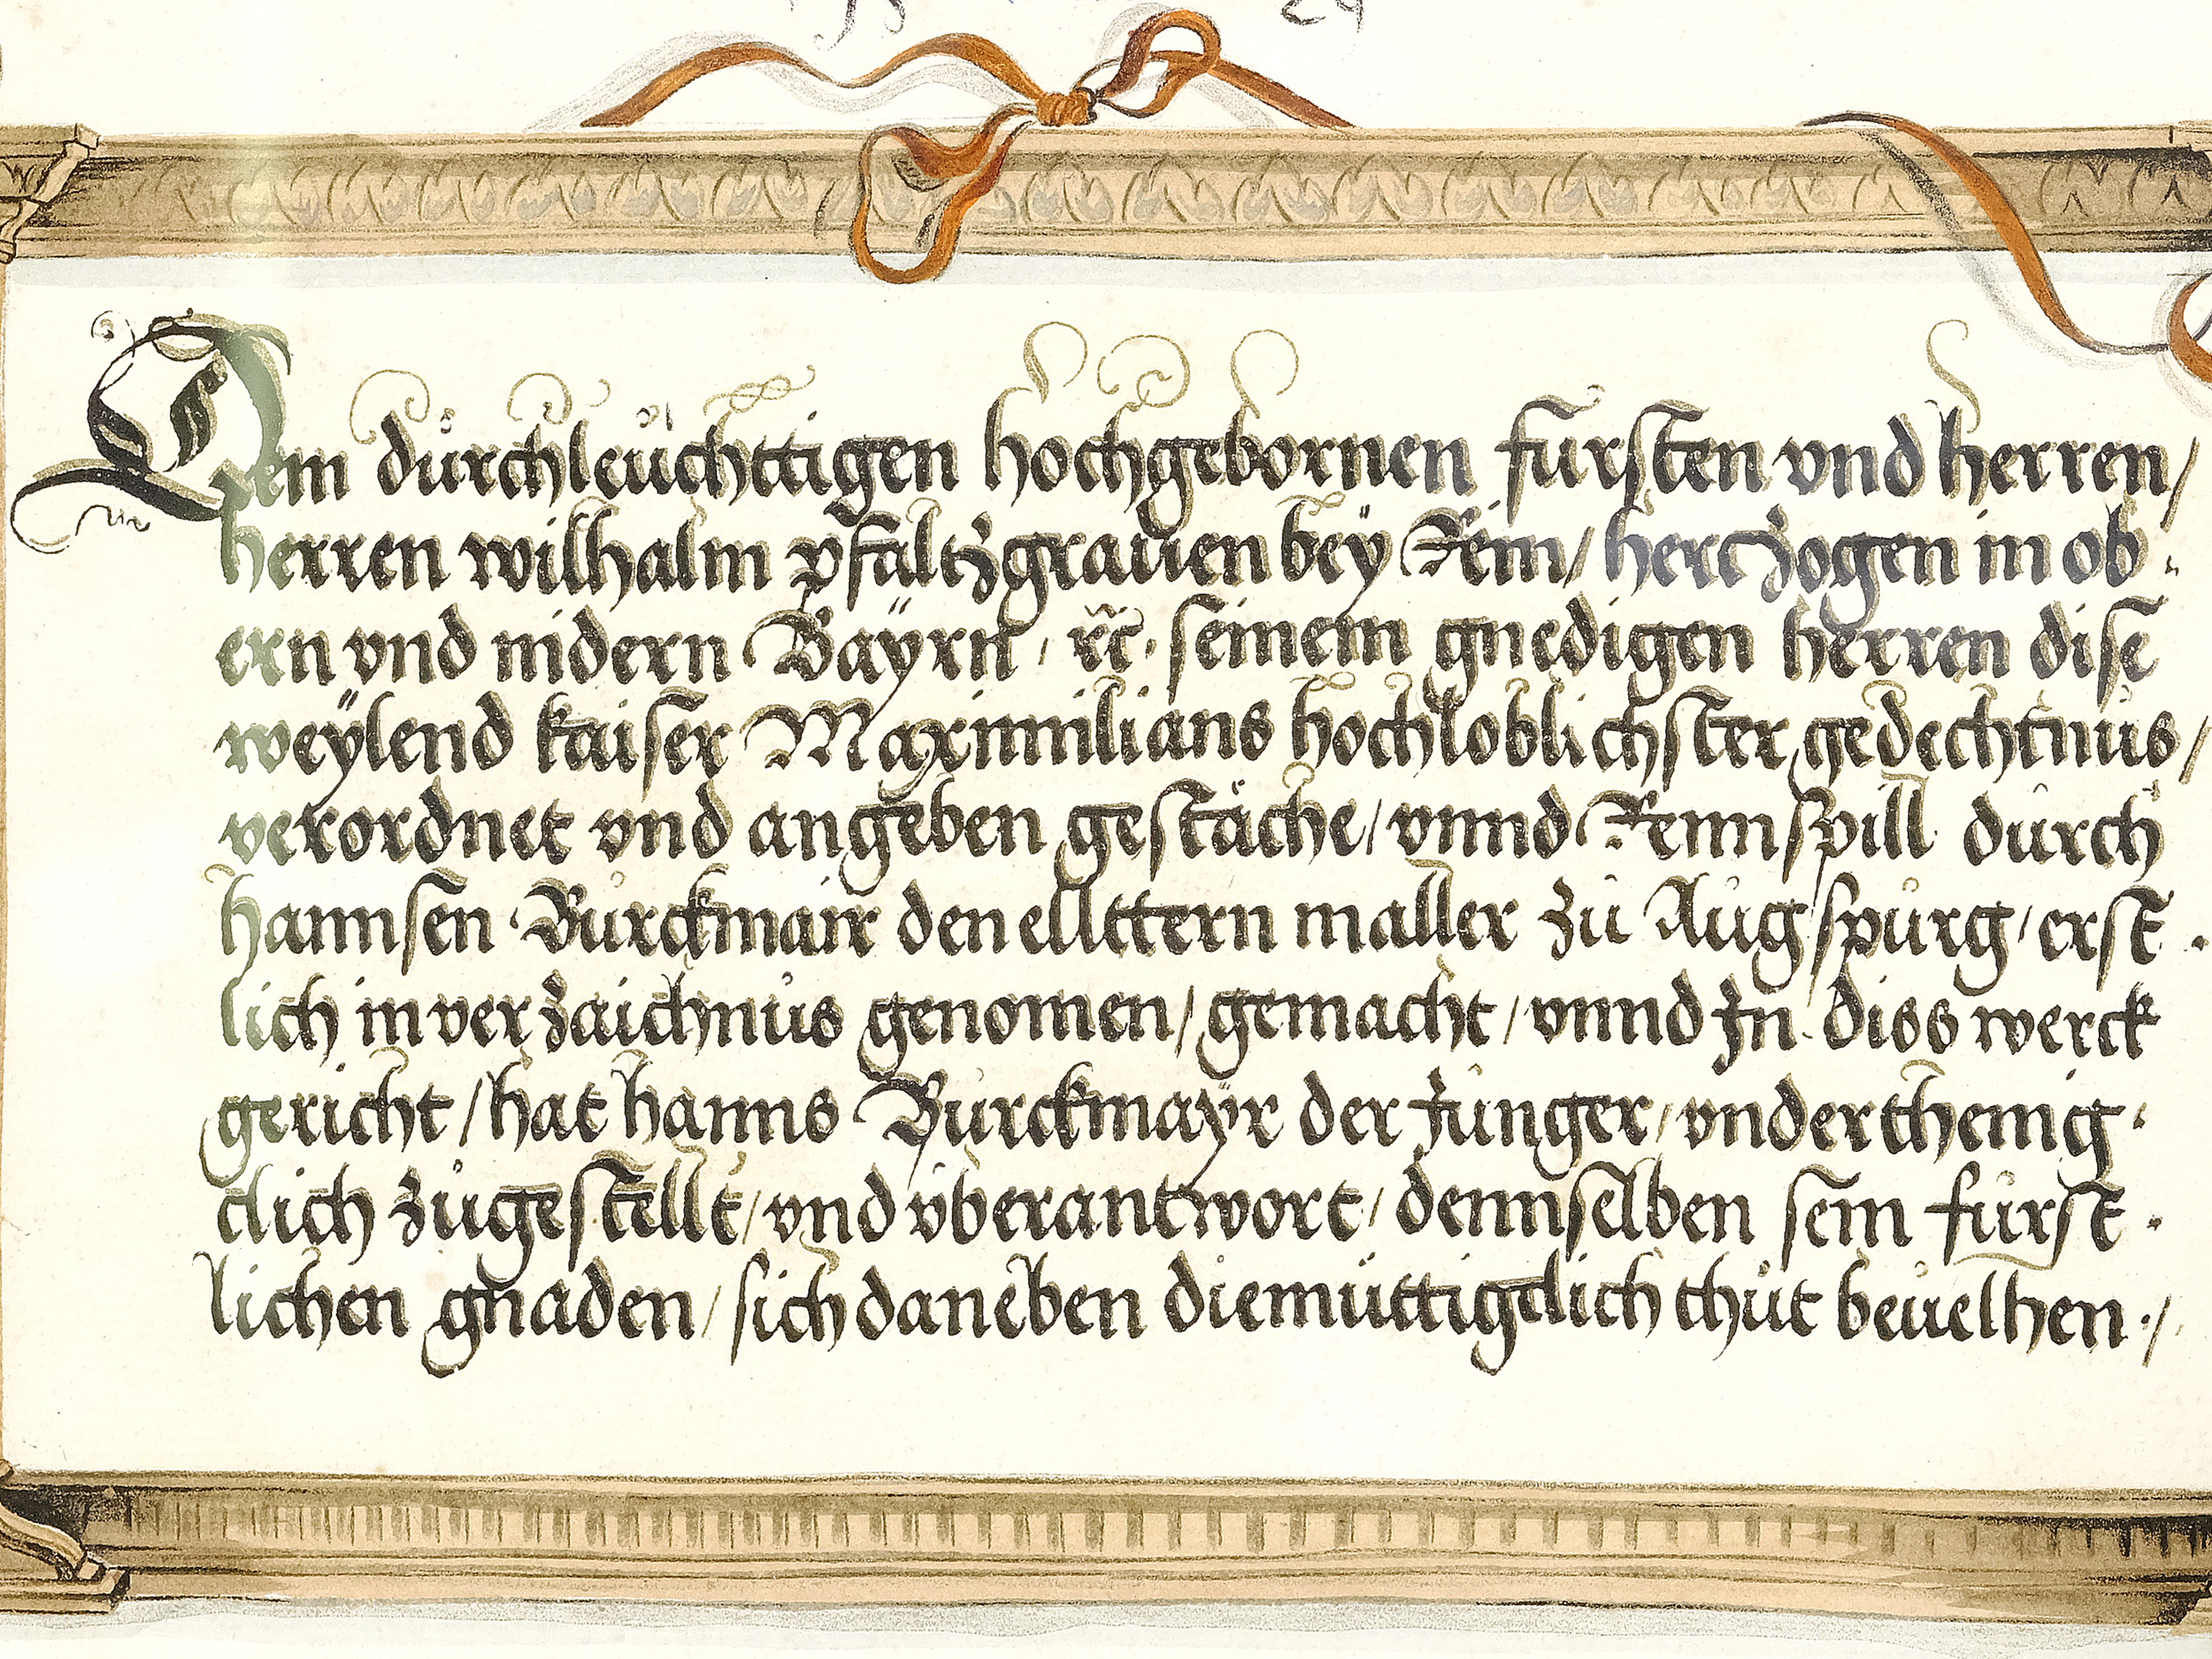 Dem dürchleüchttigen hochgebornen fürsten vnd herren/
herren wilhalm pfaltzgrauen beÿ Rein/ hertzogen in ob.
ern vnd nidern Baÿrn / ꝛc. seinem gnedigen herren dise
weÿlend kaiser Maximilians hochloblichster gedechtnüs/
verordnet vnd angeben gestäche/ vnnd Rennspill dürch
hannsen Bürckmair den ellttern maller zü Augspürg/ erst.
lich in verzaichnüs genomen/ gemacht/ vnnd In diss werck
gericht/ hat hanns Bürckmaÿr der Jünger/ vnderthenig.
clich zügestellt/ vnd vberantwort/ dennselben sein fürst.
lichen gnaden/ sich daneben diemüttigclich thüt beuelhen./